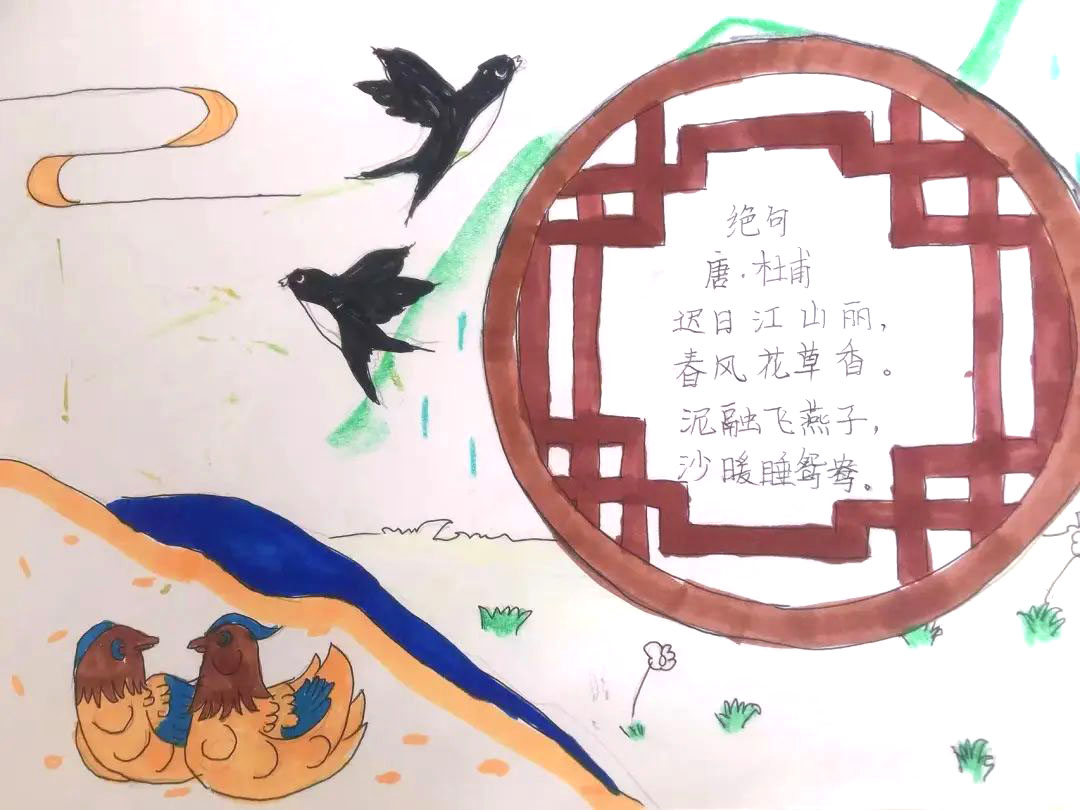 绝句
唐·杜甫
迟日江山丽,
春风花草香。
泥融飞燕子,
沙暖睡鸳鸯。